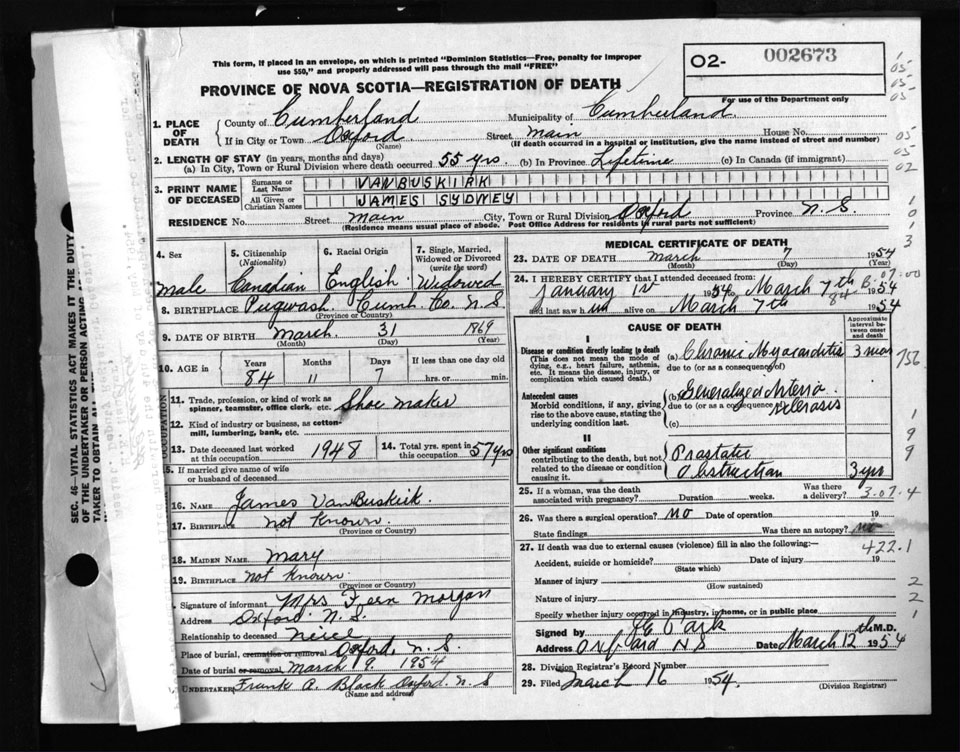 This form, if placed in an envelope, on which is printed "Dominion Statistics—Free, penalty for improper
use $50," and properly addressed will pass through the mail "FREE"
O2- 002673
For use of the Department only
PROVINCE OF NOVA SCOTIA—REGISTRATION OF DEATH
1. PLACE OF DEATH
County of Cumberland Municipality of Cumberland
If in City or Town Oxford Street Main House No.
(Name) (If death occurred in a hospital or institution, give the name instead of street and number)
2. LENGTH OF STAY (in years, months and days)
(a) In City, Town or Rural Division where death occurred 55 yrs. (b) In Province Lifetime (c) In Canada (if immigrant)
3. PRINT NAME OF DECEASED
Surname or Last Name VANBUSKIRK
All Given or Christian Names JAMES SYDNEY
RESIDENCE No. Street Main City, Town or Rural Division Oxford Province N.S.
(Residence means usual place of abode. Post Office Address for residents in rural parts not sufficient)
4. Sex Male
5. Citizenship (Nationality) Canadian
6. Racial Origin English
7. Single, Married, Widowed or Divorced (write the word) Widowed
8. BIRTHPLACE Pugwash Cumb. Co. N.S
(Province or Country)
9. DATE OF BIRTH March 31 1869
(Month) (Day) (Year)
10. AGE in Years 84 Months 11 Days 7 If less than one day old hrs. or min.
11. Trade, profession, or kind of work as spinner, teamster, office clerk, etc. Shoe Maker
12. Kind of industry or business, as cotton-mill, lumbering, bank, etc.
13. Date deceased last worked at this occupation 1948
14. Total yrs. spent in this occupation 57 yrs
15. If married give name of wife or husband of deceased
16. NAME James VanBuskirk
17. BIRTHPLACE not known
(Province or Country)
18. MAIDEN NAME Mary
19. BIRTHPLACE not known
(Province or Country)
Signature of informant Mrs Fern Morgan
Address Oxford N.S.
Relationship to deceased neice
Place of burial, cremation or removal Oxford, N.S.
Date of burial or removal March 9. 1954
UNDERTAKER Frank A. Black Oxford. N.S
(Name and address)
MEDICAL CERTIFICATE OF DEATH
23. DATE OF DEATH March 7 1954
(Month) (Day) (Year)
24. I HEREBY CERTIFY that I attended deceased from:
January 1st 1954 to March 7th 1954
and last saw him alive on March 7th 1954
CAUSE OF DEATH
Approximate interval between onset and death
I
Disease or condition directly leading to death
(This does not mean the mode of dying, e.g., heart failure, asthenia, etc. It means the disease, injury, or complication which caused death.)
(a) Chronic Myocarditis 3 mos
due to (or as a consequence of)
Antecedent causes
Morbid conditions, if any, giving rise to the above cause, stating the underlying condition last.
(b) Generalized Arterio
due to (or as a consequence of) sclerosis
(c)
II
Other significant conditions
contributing to the death, but not related to the disease or condition causing it.
Prostatic
Obstruction 3 yrs
25. If a woman, was the death associated with pregnancy? Duration weeks. Was there a delivery?
26. Was there a surgical operation? No Date of operation 19
State findings Was there an autopsy? No
27. If death was due to external causes (violence) fill in also the following:—
Accident, suicide or homicide? Date of injury 19
(State which)
Manner of injury
(How sustained)
Nature of injury
Specify whether injury occurred in industry, in home, or in public place
Signed by Park M.D.
Address Oxford NS Date March 12th 1954
28. Division Registrar's Record Number
29. Filed March 16 1954.
(Division Registrar)
756
422.1
SEC. 46—VITAL STATISTICS ACT MAKES IT THE DUTY
OF THE UNDERTAKER OR PERSON ACTING
TAKER TO OBTAIN